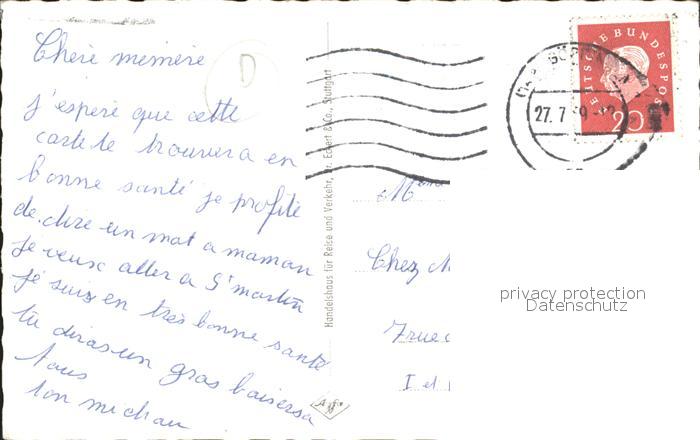 Chère mémère
j'espère que cette
carte te trouvera en
bonne santé je profite
de dire un mot a maman
je veux aller a St martin
je suis en très bonne santé
tu diras un gros baiser a
tous
ton michau
D
Handelshaus für Reise und Verkehr, Dr. Eckert & Co., Stuttgart
DEUTSCHE BUNDESPOST
20
27. 7. 59
Mme
Chez M
7 rue
I et
privacy protection
Datenschutz